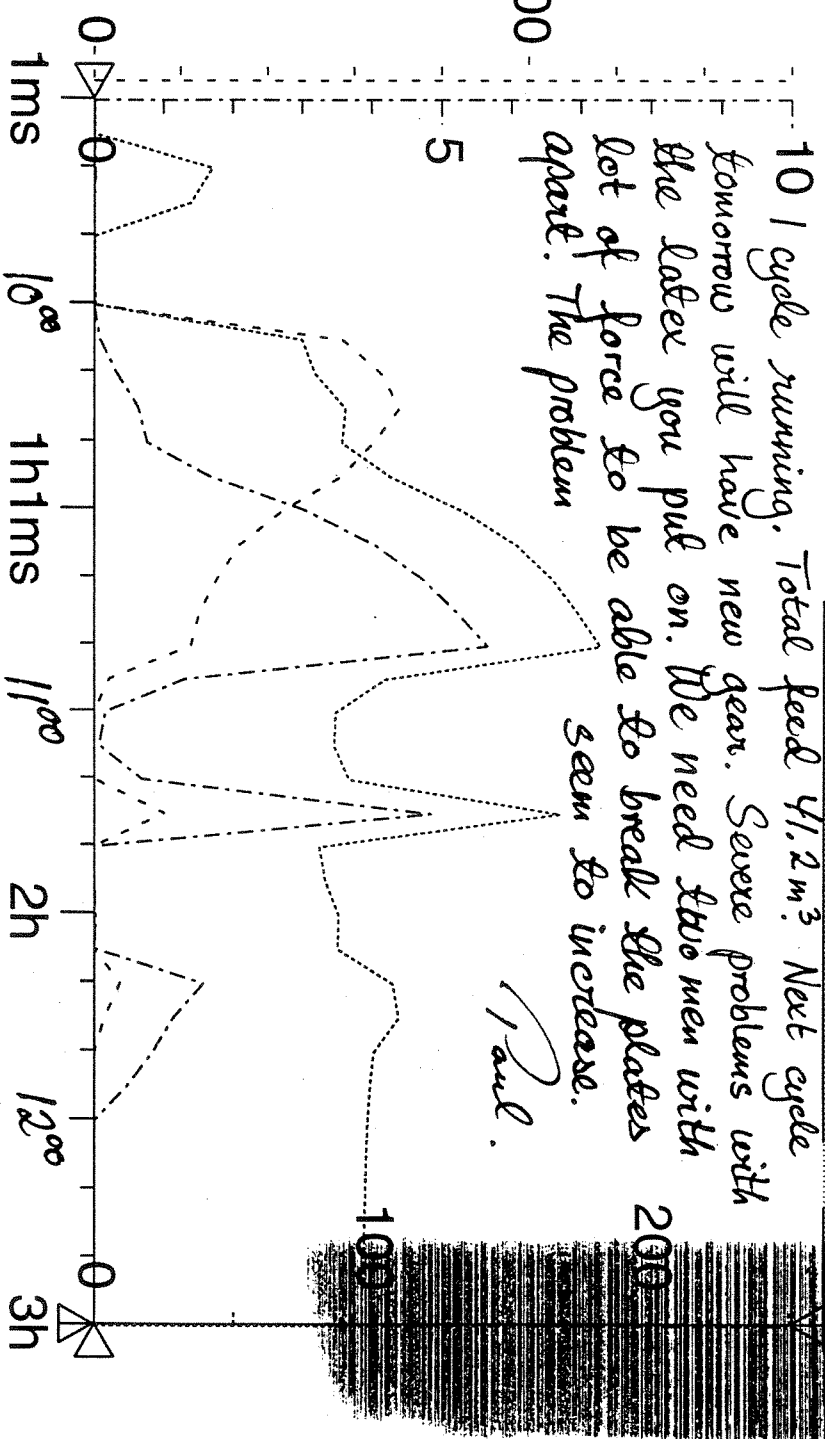 1 cycle running. Total feed 41.2 m³. Next cycle
tomorrow will have new gear. Severe problems with
the latex you put on. We need two men with
lot of force to be able to break the plates
apart. The problem seem to increase.
Paul.
10
5
0
0
00
200
100
0
1ms
10⁰⁰
1h1ms
11⁰⁰
2h
12⁰⁰
3h